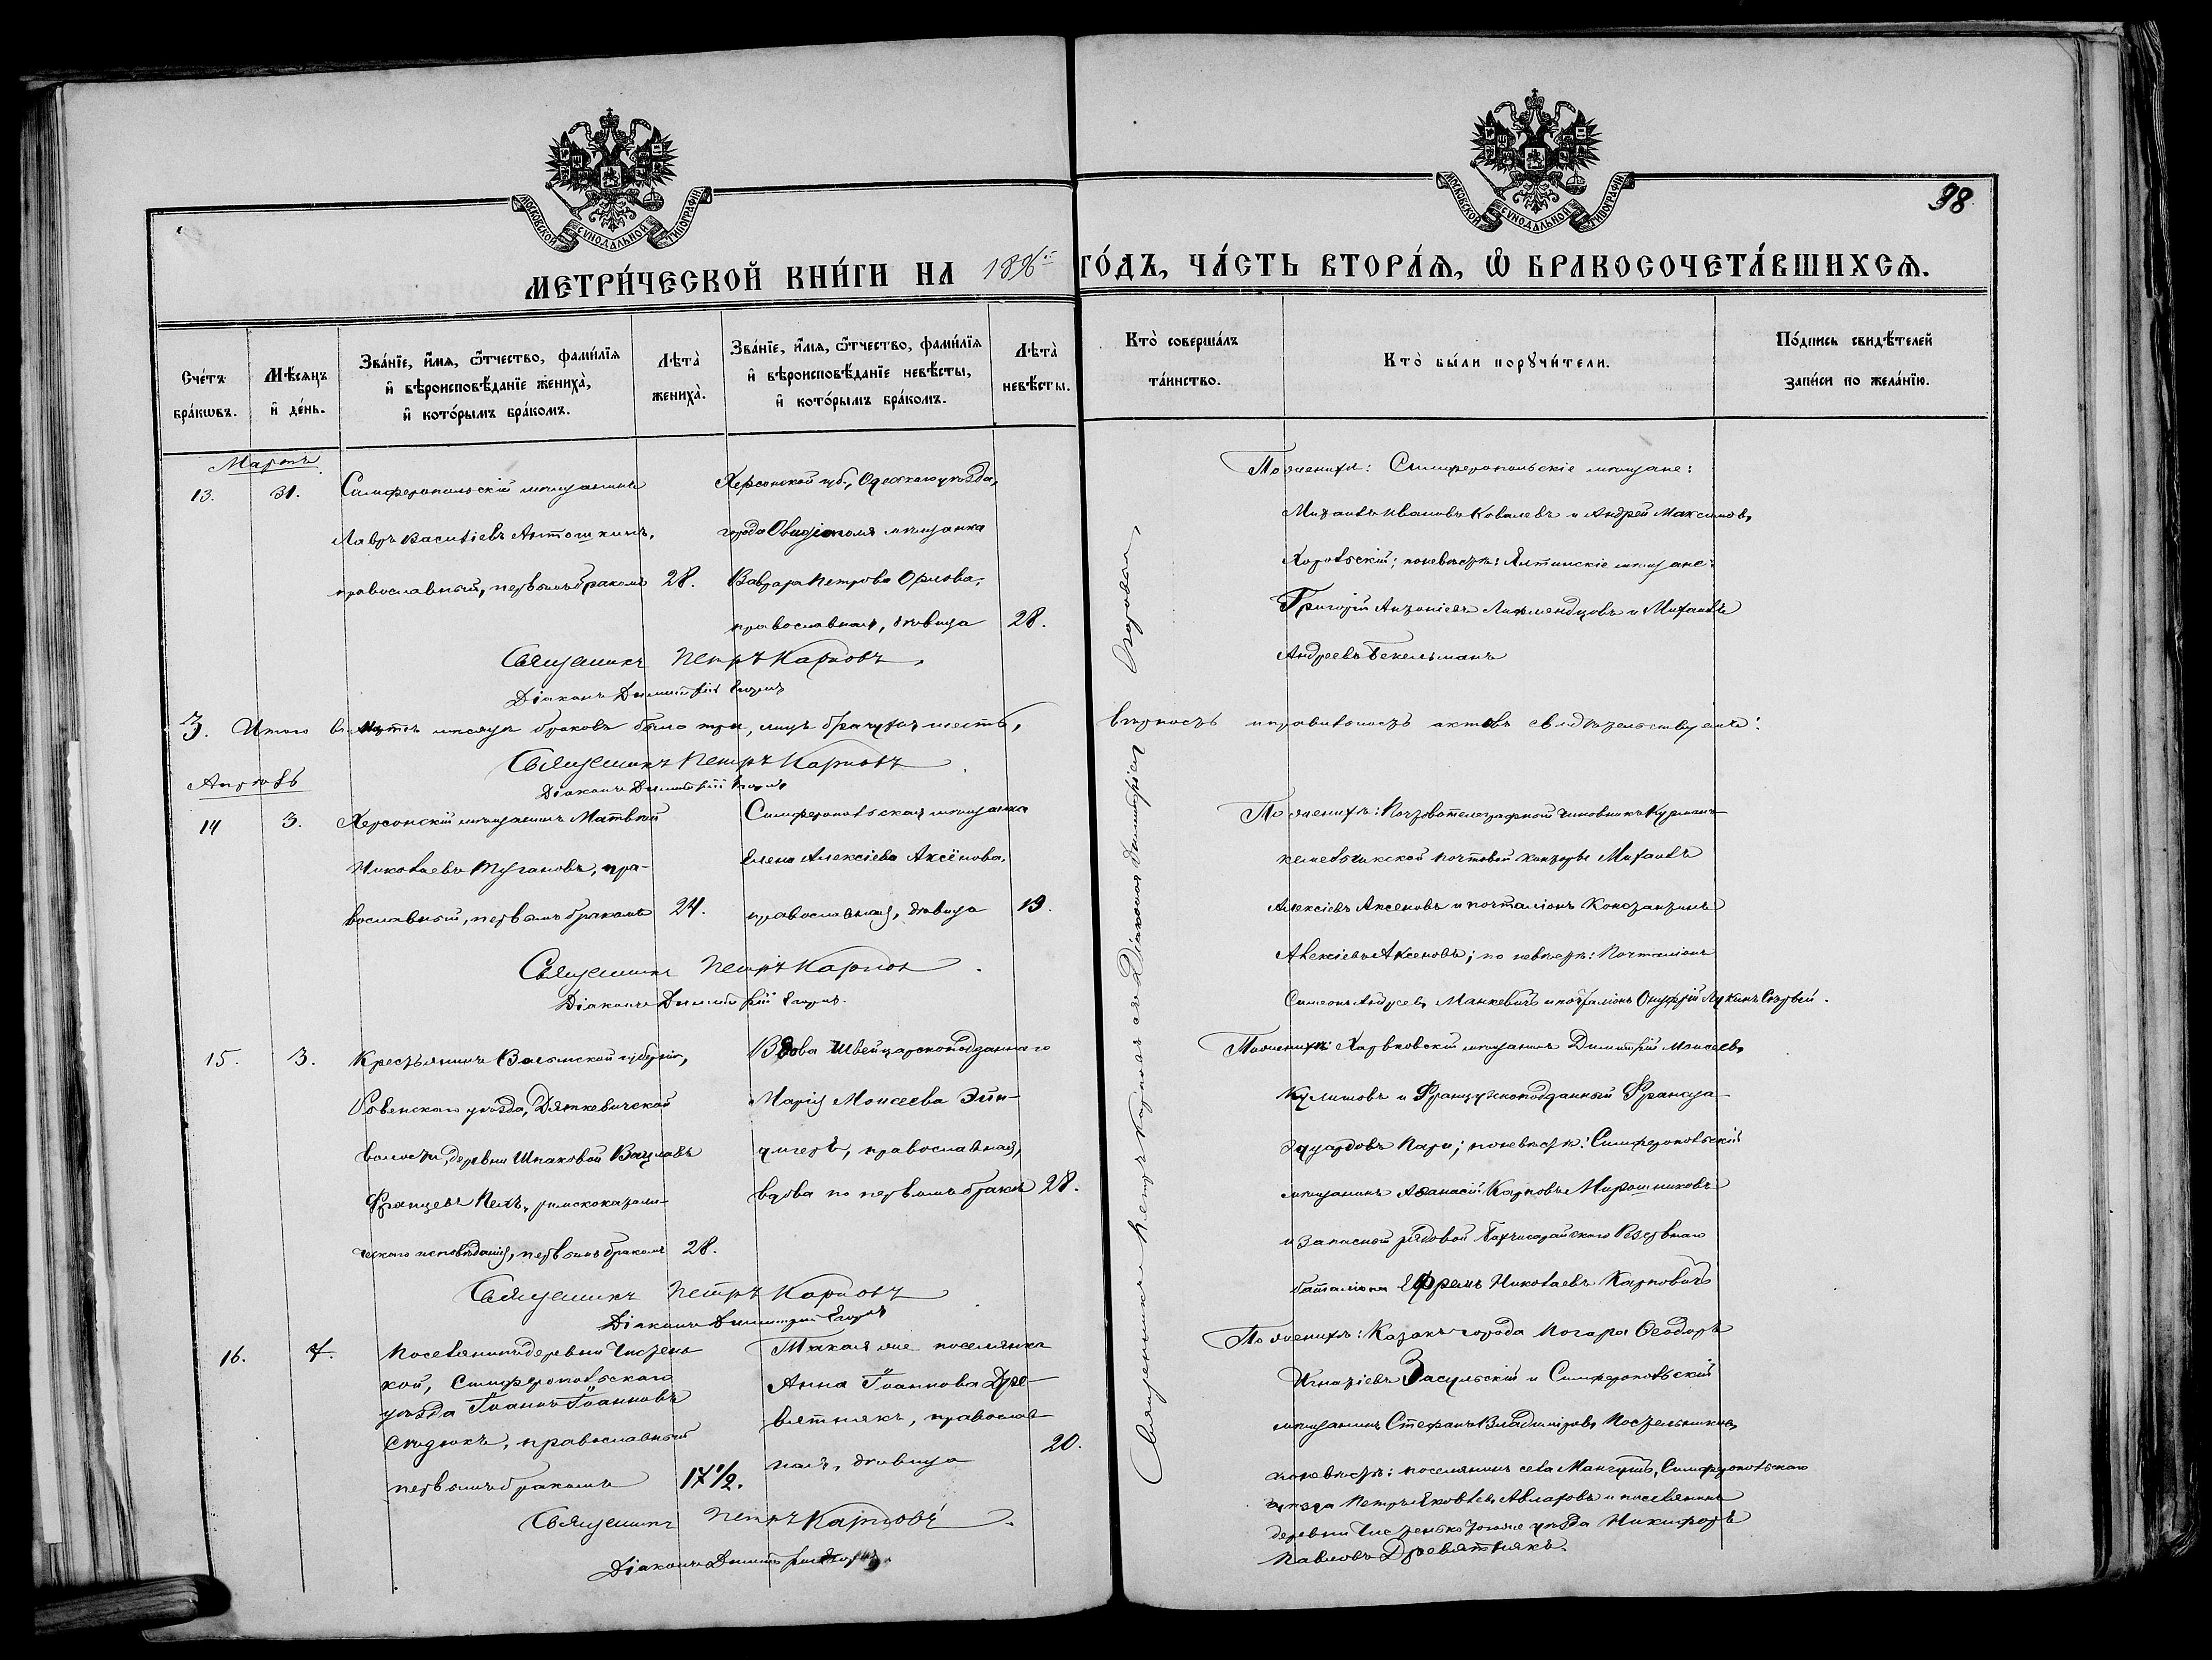 МОСКОВСКОЙ СѴНОДАЛЬНОЙ ТИПОГРАФІИ
МОСКОВСКОЙ СѴНОДАЛЬНОЙ ТИПОГРАФІИ
98
МЕТРИ́ЧЕСКОЙ КНИ́ГИ НА 1896й ГО́ДЪ, ЧА́СТЬ ВТОРА́Ѧ, Ѡ҆ БРАКОСОЧЕТА́ВШИХСѦ.
Сче́тъ бра́кѡвъ.
Мѣ́сяцъ и҆ де́нь.
Зва́нїе, и҆́мѧ, ѻ҆́тчество, фами́лїѧ и҆ вѣроисповѣ́данїе жениха̀, и҆ кото́рымъ бра́комъ.
Лѣта̀ жениха̀.
Зва́нїе, и҆́мѧ, ѻ҆́тчество, фами́лїѧ и҆ вѣроисповѣ́данїе невѣ́сты, и҆ кото́рымъ бра́комъ.
Лѣта̀ невѣ́сты.
Кто̀ соверша́лъ та́инство.
Кто̀ бы́ли порꙋчи́тели.
По́дпись свидѣ́телей за́писи по жела́нїю.
Мартъ
13.
31.
Симферопольскій мѣщанинъ
Лавръ Василіевъ Антошкинъ,
православный, первымъ бракомъ
28.
Херсонской губ., Одесскаго уѣзда,
города Овидіополя мѣщанка
Варвара Петрова Орлова,
православная, дѣвица
28.
По женихѣ: Симферопольскіе мѣщане:
Михаилъ Ивановъ Ковалевъ и Андрей Максимовъ
по невѣстѣ: Ялтинскіе мѣщане:
Григорій и Михаилъ
Андреевъ Бекельманъ
Священникъ Петръ Карповъ
Діаконъ Димитрій
3. Итого въ Мартѣ мѣсяцѣ браковъ было три, лицъ брачущихся шесть,
вѣрность и правильность актовъ свидѣтельствуемъ:
Священникъ Петръ Карповъ
Діаконъ Димитрій
Апрѣль
14
3.
Херсонскій мѣщанинъ Матвѣй
Николаевъ Тугановъ, пра-
вославный, первымъ бракомъ
24.
Симферопольская мѣщанка
Елена Алексіева Аксёнова,
православная, дѣвица
19.
По женихѣ: Почтовотелеграфный чиновникъ Курманъ
кемельчикской почтовой конторы Михаилъ
Алексіевъ Аксеновъ и почталіонъ Константинъ
Алексіевъ Аксеновъ; по невѣстѣ: Почталіонъ
Симеонъ Манкевичъ и почталіонъ Онуфрій Лукинъ
Священникъ Петръ Карповъ
Діаконъ Димитрій
15.
3.
Крестьянинъ Волынской губерніи,
Ровенскаго уѣзда, Дяткевичской
волости, деревни Шпаковой Вацлавъ
Францевъ Пехъ, римскокатоли-
ческаго исповѣданія, первымъ бракомъ
28.
Вдова Швейцарскоподданнаго
Марія Моисеева Эйн-
православная,
вдова по первомъ бракѣ
28.
По женихѣ: Харьковскій мѣщанинъ Димитрій Моисеевъ
Кулишовъ и Французскоподданный Франсуа
Эдуардовъ Пари; по невѣстѣ: Симферопольскій
мѣщанинъ Аѳанасій Карповъ Мирошниковъ
и запасной рядовой Бахчисарайскаго Резервнаго
баталіона Ефремъ Николаевъ Карповичъ
Священникъ Петръ Карповъ
Діаконъ Димитрій
16.
7.
Поселянинъ деревни Чистень-
кой, Симферопольскаго
уѣзда Іоаннъ Іоанновъ
православный
первымъ бракомъ
17½.
Такая же поселянка
Анна Іоаннова Дре-
вятнякъ, православ-
ная, дѣвица
20.
По женихѣ: Казакъ города Погара Ѳеодоръ
Игнатіевъ Засульскій и Симферопольскій
мѣщанинъ Стефанъ Владиміровъ Постельниковъ,
по невѣстѣ: поселянинъ села Мангушъ, Симферопольскаго
уѣзда Петръ Яковлевъ Авларовъ и поселянинъ
деревни Чистенькой того же уѣзда Никифоръ
Павловъ Древятнякъ.
Священникъ Петръ Карповъ
Діаконъ Димитрій
Священникъ Петръ Карповъ съ Діакономъ Димитріемъ